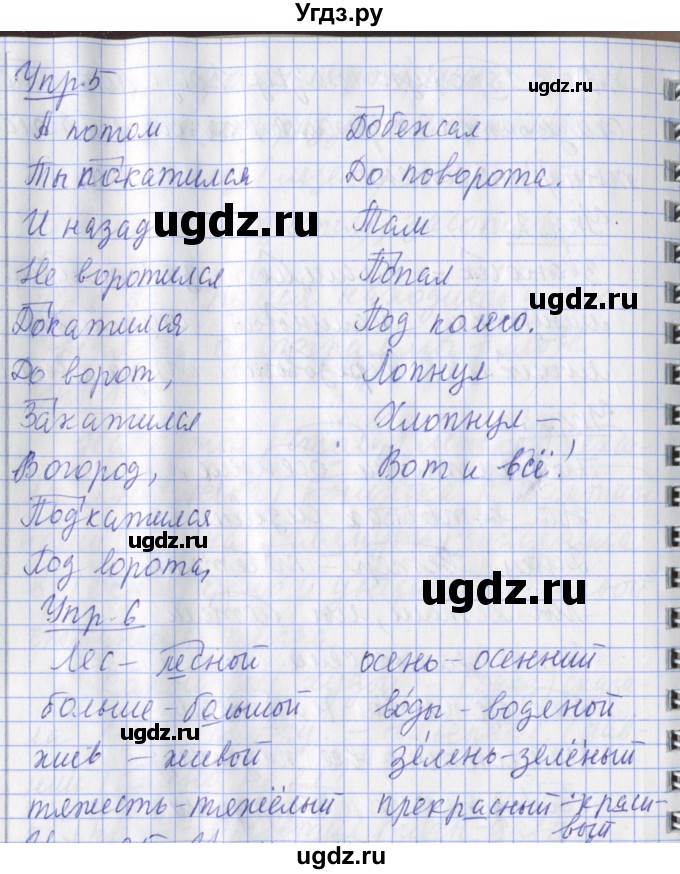 Угдз.ру
Упр. 5
А потом
Ты покатился
И назад
Не воротился
Докатился
До ворот,
Закатился
В огород,
Подкатился
Под ворота,
Добежал
До поворота.
Там
Попал
Под колесо.
Лопнул
Хлопнул –
Вот и всё!
Упр. 6
Лес – лесной
больше – большой
жив – живой
тяжесть – тяжёлый
осень – осенний
во́ды – водяной
зе́лень – зелёный
прекрасный – краси-
вый
ugdz.ru
ugdz.ru
ugdz.ru
ugdz.ru
ugdz.ru
ugdz.ru
ugdz.ru
ugdz.ru